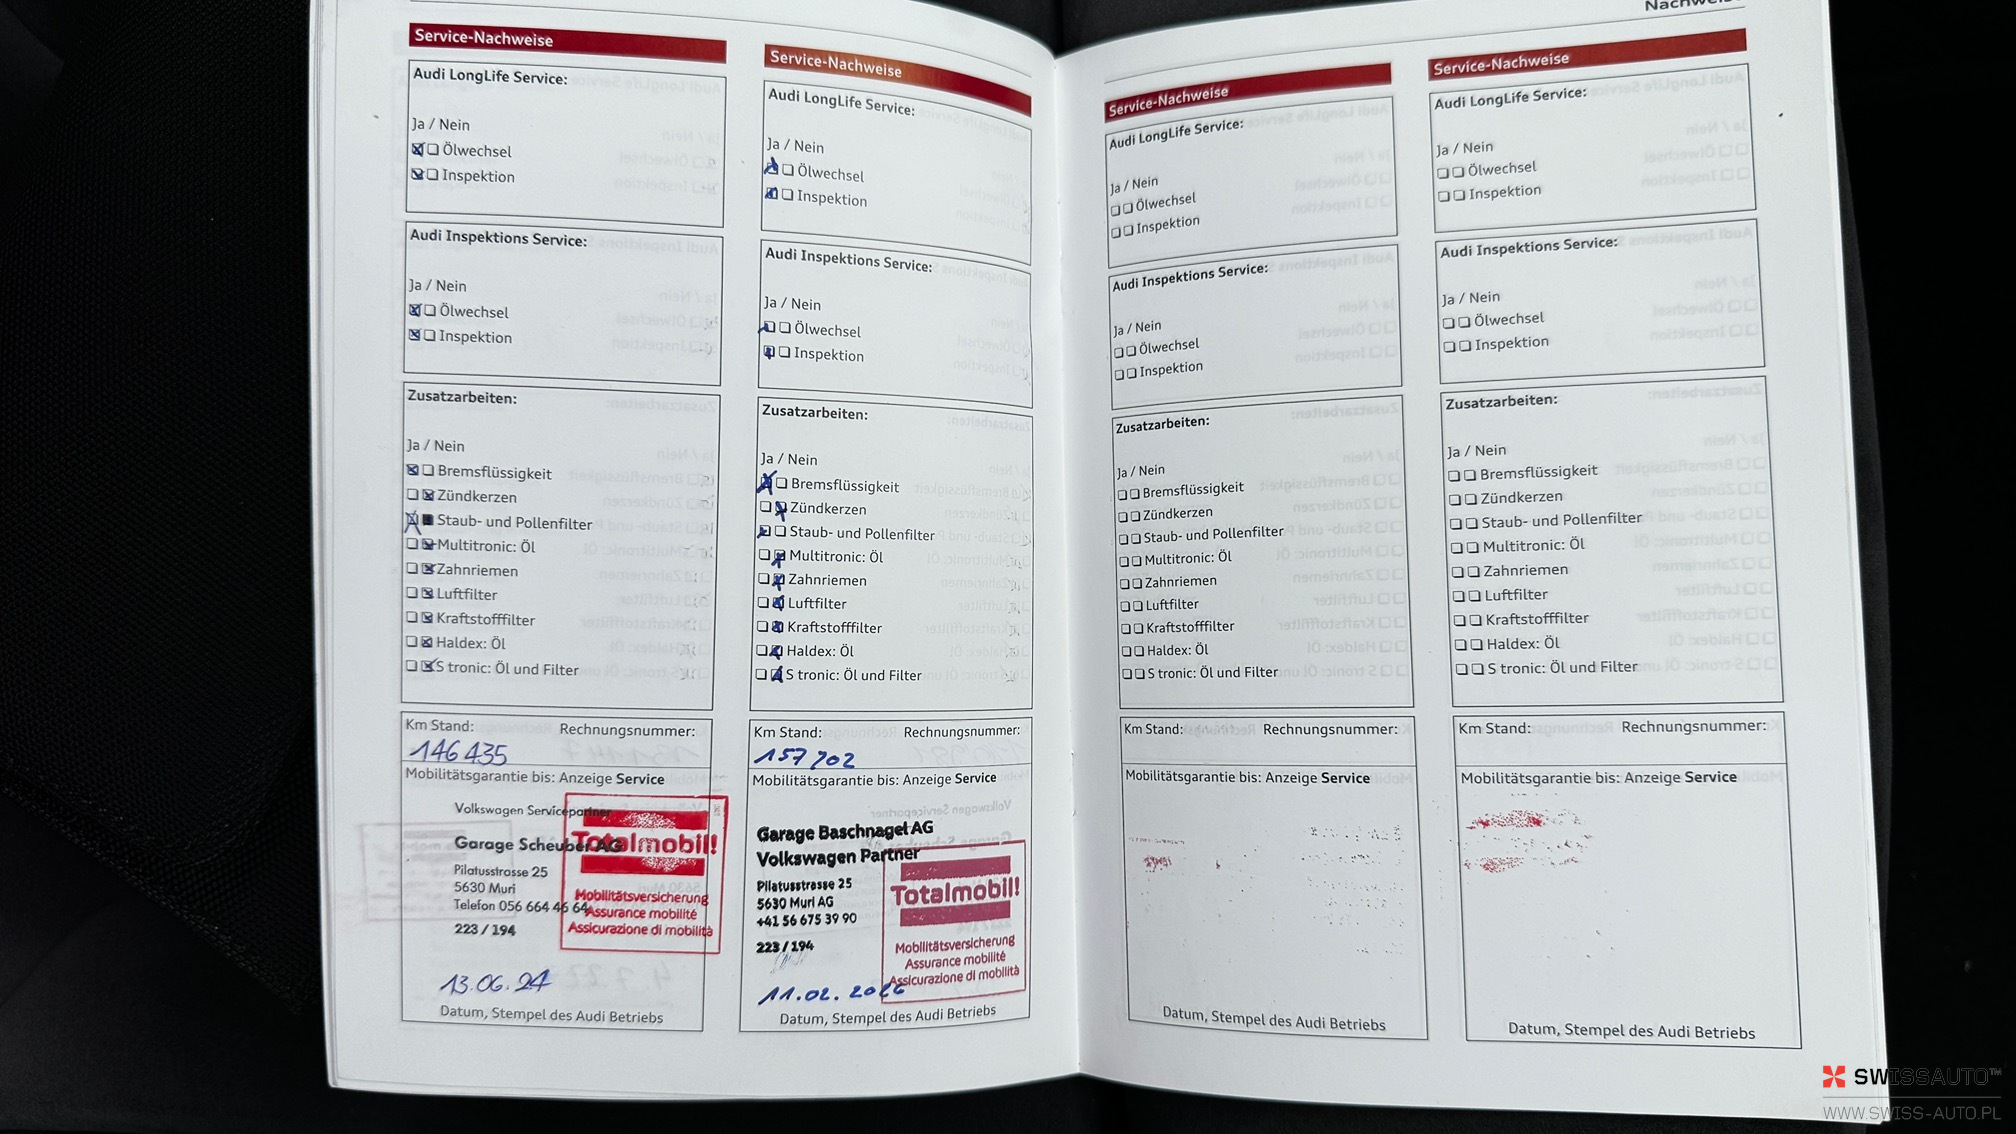 Service-Nachweise
Audi LongLife Service:
Ja / Nein
Ölwechsel
Inspektion
Audi Inspektions Service:
Ja / Nein
Ölwechsel
Inspektion
Zusatzarbeiten:
Ja / Nein
Bremsflüssigkeit
Zündkerzen
Staub- und Pollenfilter
Multitronic: Öl
Zahnriemen
Luftfilter
Kraftstofffilter
Haldex: Öl
S tronic: Öl und Filter
Km Stand: Rechnungsnummer:
146 435
Mobilitätsgarantie bis: Anzeige Service
Volkswagen Servicepartner
Garage Scheuber AG
Pilatusstrasse 25
5630 Muri
Telefon 056 664 46 64
223 / 194
Totalmobil!
Mobilitätsversicherung
Assurance mobilité
Assicurazione di mobilità
13.06.24
Datum, Stempel des Audi Betriebs
Service-Nachweise
Audi LongLife Service:
Ja / Nein
Ölwechsel
Inspektion
Audi Inspektions Service:
Ja / Nein
Ölwechsel
Inspektion
Zusatzarbeiten:
Ja / Nein
Bremsflüssigkeit
Zündkerzen
Staub- und Pollenfilter
Multitronic: Öl
Zahnriemen
Luftfilter
Kraftstofffilter
Haldex: Öl
S tronic: Öl und Filter
Km Stand: Rechnungsnummer:
157 702
Mobilitätsgarantie bis: Anzeige Service
Garage Baschnagel AG
Volkswagen Partner
Pilatusstrasse 25
5630 Muri AG
+41 56 675 39 90
223 / 194
Totalmobil!
Mobilitätsversicherung
Assurance mobilité
Assicurazione di mobilità
11.02.
Datum, Stempel des Audi Betriebs
Service-Nachweise
Audi LongLife Service:
Ja / Nein
Ölwechsel
Inspektion
Audi Inspektions Service:
Ja / Nein
Ölwechsel
Inspektion
Zusatzarbeiten:
Ja / Nein
Bremsflüssigkeit
Zündkerzen
Staub- und Pollenfilter
Multitronic: Öl
Zahnriemen
Luftfilter
Kraftstofffilter
Haldex: Öl
S tronic: Öl und Filter
Km Stand: Rechnungsnummer:
Mobilitätsgarantie bis: Anzeige Service
Datum, Stempel des Audi Betriebs
Nachweise
Service-Nachweise
Audi LongLife Service:
Ja / Nein
Ölwechsel
Inspektion
Audi Inspektions Service:
Ja / Nein
Ölwechsel
Inspektion
Zusatzarbeiten:
Ja / Nein
Bremsflüssigkeit
Zündkerzen
Staub- und Pollenfilter
Multitronic: Öl
Zahnriemen
Luftfilter
Kraftstofffilter
Haldex: Öl
S tronic: Öl und Filter
Km Stand: Rechnungsnummer:
Mobilitätsgarantie bis: Anzeige Service
Datum, Stempel des Audi Betriebs
SWISSAUTO™
WWW.SWISS-AUTO.PL